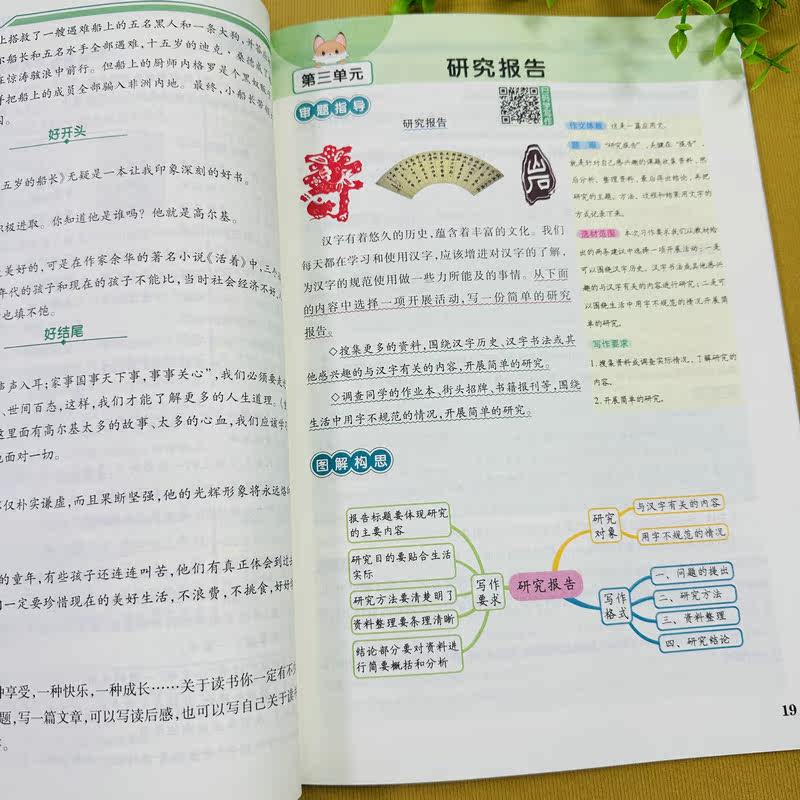 上搭救了一艘遇难船上的五名黑人和一条大狗,并
船长和五名水手全部遇难,十五岁的迪克·桑德
在惊涛骇浪中前行。但船上的厨师内格罗是个黑奴贩
并把船上的成员全部骗入非洲内地。最终,小船长带领
好开头
五岁的船长》无疑是一本让我印象深刻的好书。
积极进取。你知道他是谁吗?他就是高尔基。
是美好的,可是在作家余华的著名小说《活着》中,三
年代的孩子和现在的孩子不能比,当时社会经济不好,
也填不饱。
好结尾
声声入耳;家事国事天下事,事事关心”,我们必须要走
、世间百态,这样,我们才能了解更多的人生道理。
这里面有高尔基太多的故事、太多的心血,我们应该学
面对一切。
仅朴实谦虚,而且果断坚强,他的光辉形象将永远
的童年,有些孩子还连连叫苦,他们有真正体会到过
一定要珍惜现在的美好生活,不浪费,不挑食,好好
享受,一种快乐,一种成长……关于读书你一定有不
题,写一篇文章,可以写读后感,也可以写自己关于读
第三单元
研究报告
审题指导
研究报告
汉字有着悠久的历史,蕴含着丰富的文化。我们
每天都在学习和使用汉字,应该增进对汉字的了解,
为汉字的规范使用做一些力所能及的事情。从下面
的内容中选择一项开展活动,写一份简单的研究
报告。
◇搜集更多的资料,围绕汉字历史、汉字书法或其
他感兴趣的与汉字有关的内容,开展简单的研究。
◇调查同学的作业本、街头招牌、书籍报刊等,围绕
生活中用字不规范的情况,开展简单的研究。
作文体裁 这是一篇应用文。
题眼 “研究报告”,关键在“报告”,
就是针对自己感兴趣的课题收集资料,然
后分析、整理资料,最后得出结论,并把
研究的主题、方法、过程和结果用文字的
方式记录下来。
选材范围 本次习作要求我们从教材给
出的两条建议中选择一项开展活动:一是
可以围绕汉字历史、汉字书法或其他感兴
趣的与汉字有关的内容进行研究;二是可
以围绕生活中用字不规范的情况开展简
单的研究。
写作要求
1.搜集资料或调查实际情况,了解研究的
内容。
2.开展简单的研究。
图解构思
报告标题要体现研究
的主要内容
研究目的要贴合生活
实际
研究方法要清楚明了
资料整理要条理清晰
结论部分要对资料进
行简要概括和分析
写作
要求
研究报告
研究
对象
与汉字有关的内容
用字不规范的情况
写作
格式
一、问题的提出
二、研究方法
三、资料整理
四、研究结论
19